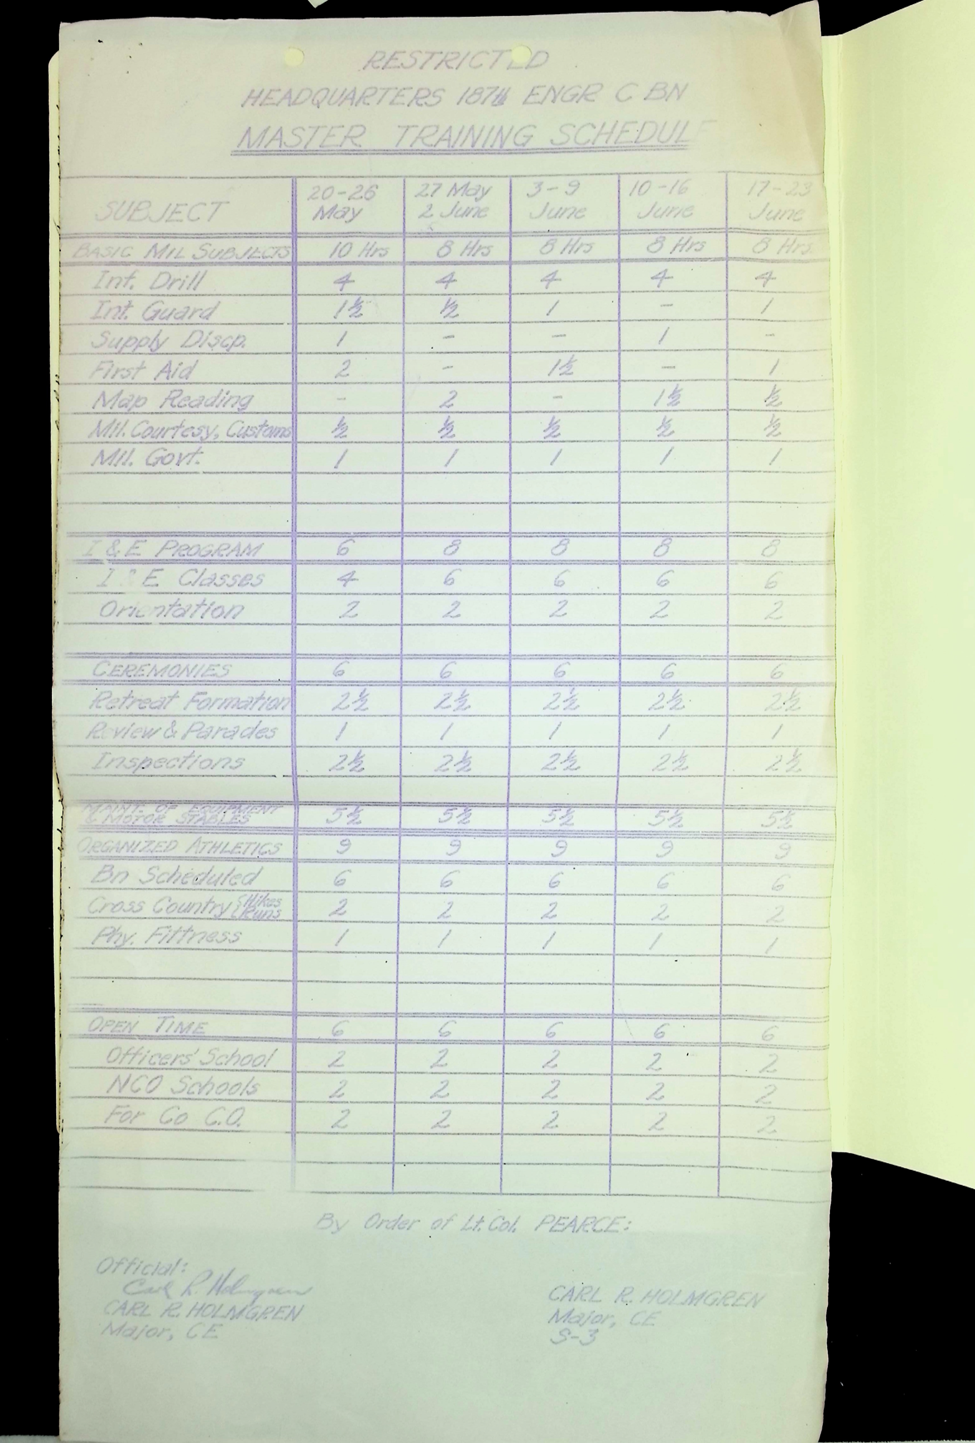 RESTRICTED
HEADQUARTERS 187th ENGR C BN
MASTER TRAINING SCHEDULE
SUBJECT 20-26 May 27 May 2 June 3-9 June 10-16 June 17-23 June
BASIC MIL SUBJECTS 10 Hrs 8 Hrs 8 Hrs 8 Hrs 8 Hrs
Int. Drill 4 4 4 4 4
Int. Guard 1½ ½ 1 - 1
Supply Discp. 1 - - 1 -
First Aid 2 - 1½ - 1
Map Reading - 2 - 1½ ½
Mil. Courtesy, Customs ½ ½ ½ ½ ½
Mil. Govt. 1 1 1 1 1
I & E PROGRAM 6 8 8 8 8
I & E Classes 4 6 6 6 6
Orientation 2 2 2 2 2
CEREMONIES 6 6 6 6 6
Retreat Formation 2½ 2½ 2½ 2½ 2½
Review & Parades 1 1 1 1 1
Inspections 2½ 2½ 2½ 2½ 2½
MAINT. OF EQUIPMENT
& MOTOR STABLES 5½ 5½ 5½ 5½ 5½
ORGANIZED ATHLETICS 9 9 9 9 9
Bn Scheduled 6 6 6 6 6
Cross Country { Hikes Runs 2 2 2 2 2
Phy. Fittness 1 1 1 1 1
OPEN TIME 6 6 6 6 6
Officers' School 2 2 2 2 2
NCO Schools 2 2 2 2 2
For Co C.O. 2 2 2 2 2
By Order of Lt. Col. PEARCE:
Official:
Carl R. Holmgren
CARL R. HOLMGREN
Major, CE
CARL R. HOLMGREN
Major, CE
S-3